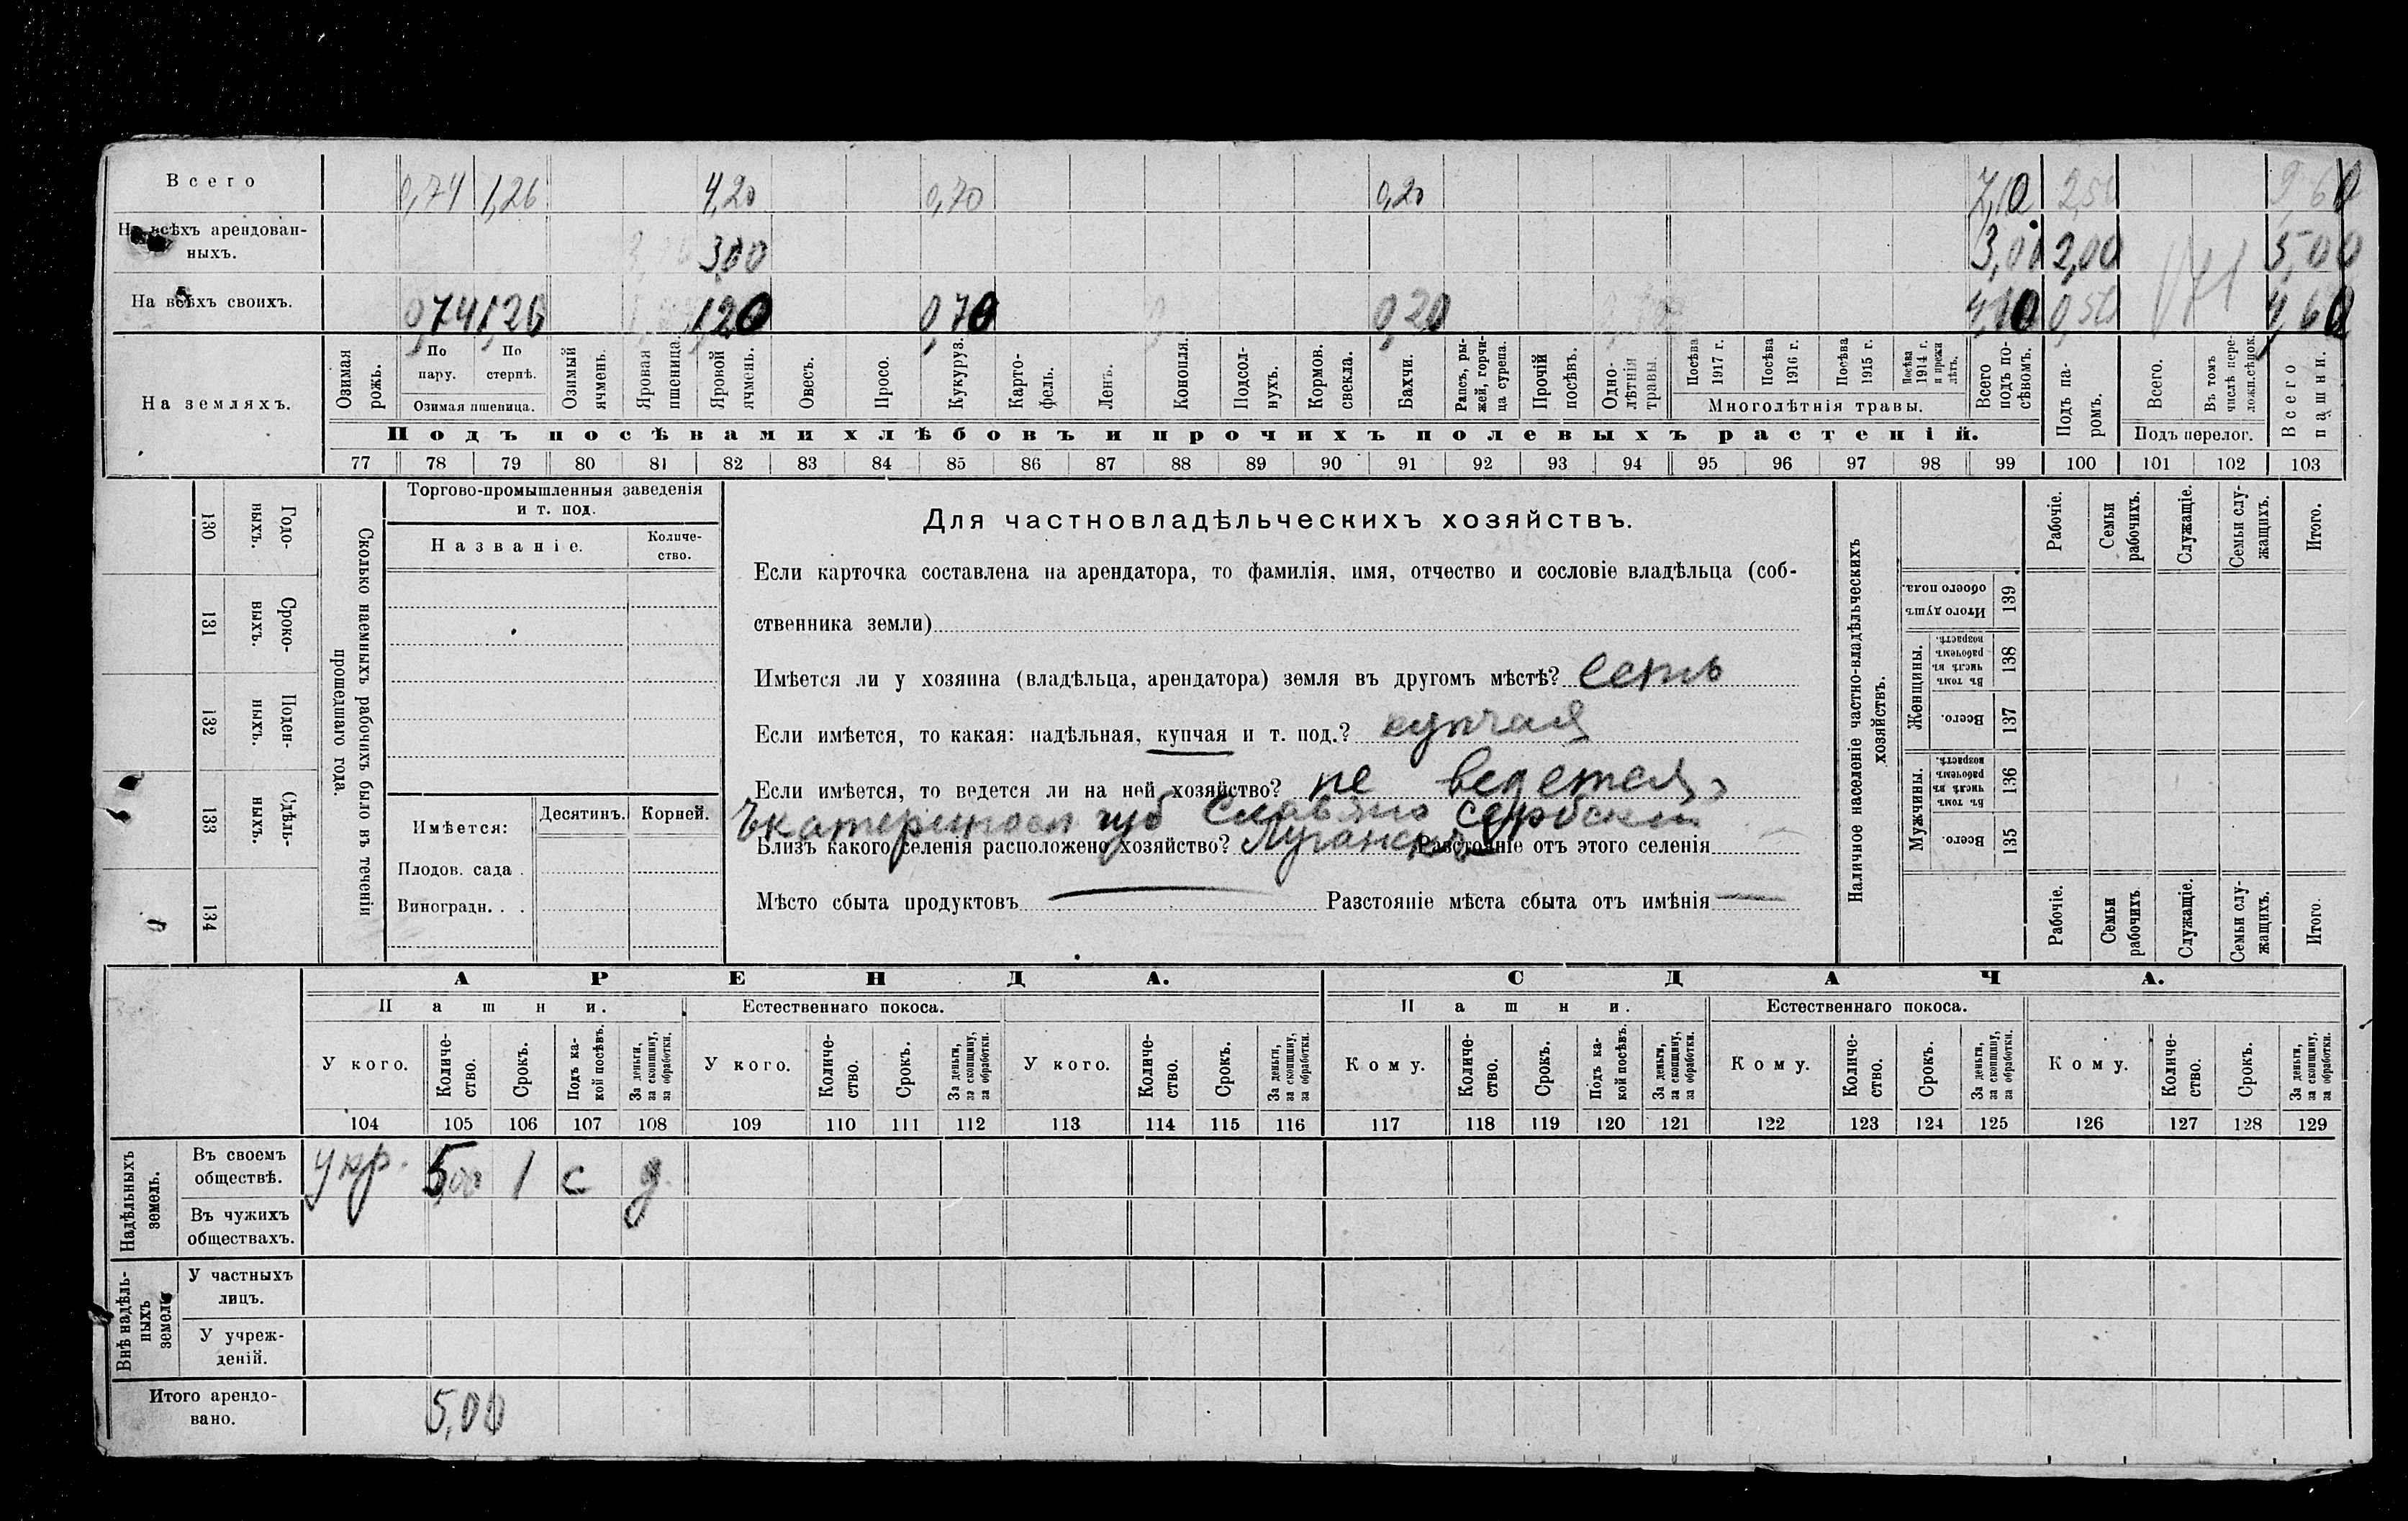 Всего 0,74 1,26 4,20 0,70 0,20 7,10 2,50 9,60
На всѣхъ арендованныхъ. 3,00 3,00 2,00 5,00
На всѣхъ своихъ. 0,74 1,26 1,20 0,70 0,20 4,10 0,50 4,60
На земляхъ.
Озимая рожь.
По пару.
По стернѣ.
Озимая пшеница.
Озимый ячмень.
Яровая пшеница.
Яровой ячмень.
Овесъ.
Просо.
Кукуруз.
Картофель.
Ленъ.
Конопля.
Подсолнухъ.
Кормов. свекла.
Бахчи.
Рапсъ, рыжей, горчица сурепа.
Прочій посѣвъ.
Однолѣтнія травы.
Посѣва 1917 г.
Посѣва 1916 г.
Посѣва 1915 г.
Посѣва 1914 г. и прежн лѣтъ.
Многолѣтнія травы.
Всего подъ посѣвомъ.
Подъ паромъ.
Всего.
Въ томъ числѣ переложн.сѣнок.
Подъ перелог.
Всего пашни.
Подъ посѣвами хлѣбовъ и прочихъ полевыхъ растеній.
77 78 79 80 81 82 83 84 85 86 87 88 89 90 91 92 93 94 95 96 97 98 99 100 101 102 103
130 Годовыхъ.
131 Сроковыхъ.
132 Поденныхъ.
133 Сдѣльныхъ.
134
Сколько наемныхъ рабочихъ было въ теченіи
прошедшаго года.
Торгово-промышленныя заведенія
и т. под.
Названіе.
Количество.
Имѣется:
Десятинъ.
Корней.
Плодов. сада .
Виноградн. . .
Для частновладѣльческихъ хозяйствъ.
Если карточка составлена на арендатора, то фамилія, имя, отчество и сословіе владѣльца (соб-
ственника земли)
Имѣется ли у хозяина (владѣльца, арендатора) земля въ другомъ мѣстѣ? есть
Если имѣется, то какая: надѣльная, купчая и т. под.? купчая
Если имѣется, то ведется ли на ней хозяйство? не ведется
Екатериносл губ Славяно сербский
Близъ какого селенія расположено хозяйство? Луганскъ Разстояніе отъ этого селенія
Мѣсто сбыта продуктовъ — Разстояніе мѣста сбыта отъ имѣнія —
Наличное населеніе частно-владѣльческихъ
хозяйствъ.
Рабочіе.
Семьи рабочихъ.
Служащіе.
Семьи служащихъ.
Итого.
139 Итого душъ обоего пола.
Женщины.
138 Въ томъ числѣ въ рабочемъ возрастѣ.
137 Всего.
Мужчины.
136 Въ томъ числѣ въ рабочемъ возрастѣ.
135 Всего.
Рабочіе.
Семьи рабочихъ
Служащіе.
Семьи служащихъ.
Итого.
АРЕНДА. СДАЧА.
Пашни. Естественнаго покоса. Пашни. Естественнаго покоса.
У кого. Количество. Срокъ. Подъ какой посѣвъ. За деньги, за скопщину, за обработки.
У кого. Количество. Срокъ. За деньги, за скопщину, за обработки.
У кого. Количество. Срокъ. За деньги, за скопщину, за обработки.
Кому. Количество. Срокъ. Подъ какой посѣвъ. За деньги, за скопщину, за обработки.
Кому. Количество. Срокъ. За деньги, за скопщину, за обработки.
Кому. Количество. Срокъ. За деньги, за скопщину, за обработки.
104 105 106 107 108 109 110 111 112 113 114 115 116 117 118 119 120 121 122 123 124 125 126 127 128 129
Надѣльныхъ земель.
Въ своемъ обществѣ. У кр. 5,00 1 с д.
Въ чужихъ обществахъ.
Внѣ надѣльныхъ земель
У частныхъ лицъ.
У учрежденій.
Итого арендовано. 5,00